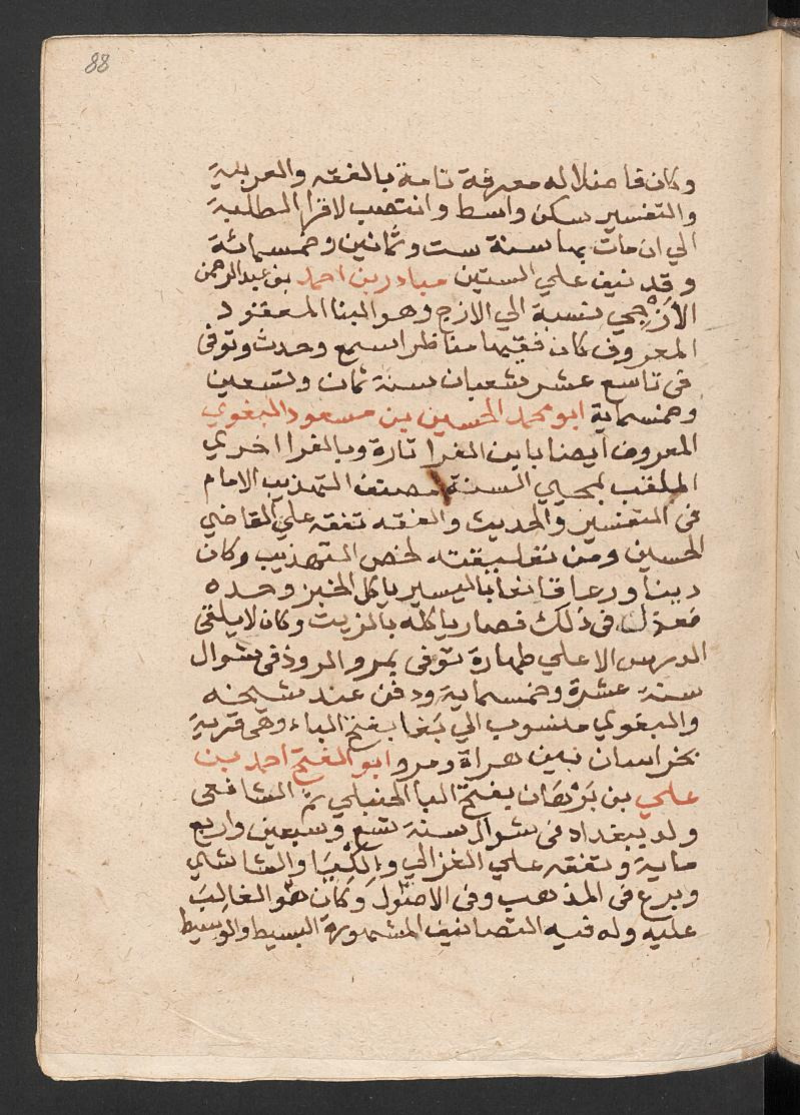 88
وكان فاضلا له معرفة تامة بالفقه والعربية
والتفسير سكن واسط وانتصب لاقرا الطلبة
الي ان مات بها سنة ست وثمانين وخمسمائة
وقد نيف علي الستين مبادر بن احمد بن عبد الرحمن
الأزَجي نسبة الي الازج وهو البنا المعقود
المعروف كان فقيها مناظرا سمع وحدث وتوفى
فى تاسع عشر شعبان سنة ثمان وتسعين
وخمسماية ابو محمد الحسين بن مسعود البغوي
المعروف ايضا بابن الفرا تارة وبالفرا اخري
الملقب بمحيي السنة مصنف التهذيب الامام
فى التفسير والحديث والفقه تفقه علي القاضي
الحسين ومن تعليقته لخص التهذيب وكان
دينا ورعا قانعا باليسير ياكل الخبز وحده
فعذل فى ذلك فصار ياكله بالزيت وكان لا يلقى
الدرس الا علي طهارة توفى بمرو الروذ فى شوال
سنة عشرة وخمسماية ودفن عند شيخه
والبغوي منسوب الي بَغا بفتح الباء وهى قرية
بخراسان بين هراة ومرو ابو الفتح احمد بن
علي بن بَرْهَان بفتح البا الحنبلي ثم الشافعى
ولد ببغداد فى شوال سنة تسع وسبعين واربع
ماية وتفقه علي الغزالي وإلكِيَا والشاشي
وبرع فى المذهب وفى الاصول وكان هو الغالب
عليه وله فيه التصانيف المشهورة البسيط والوسيط